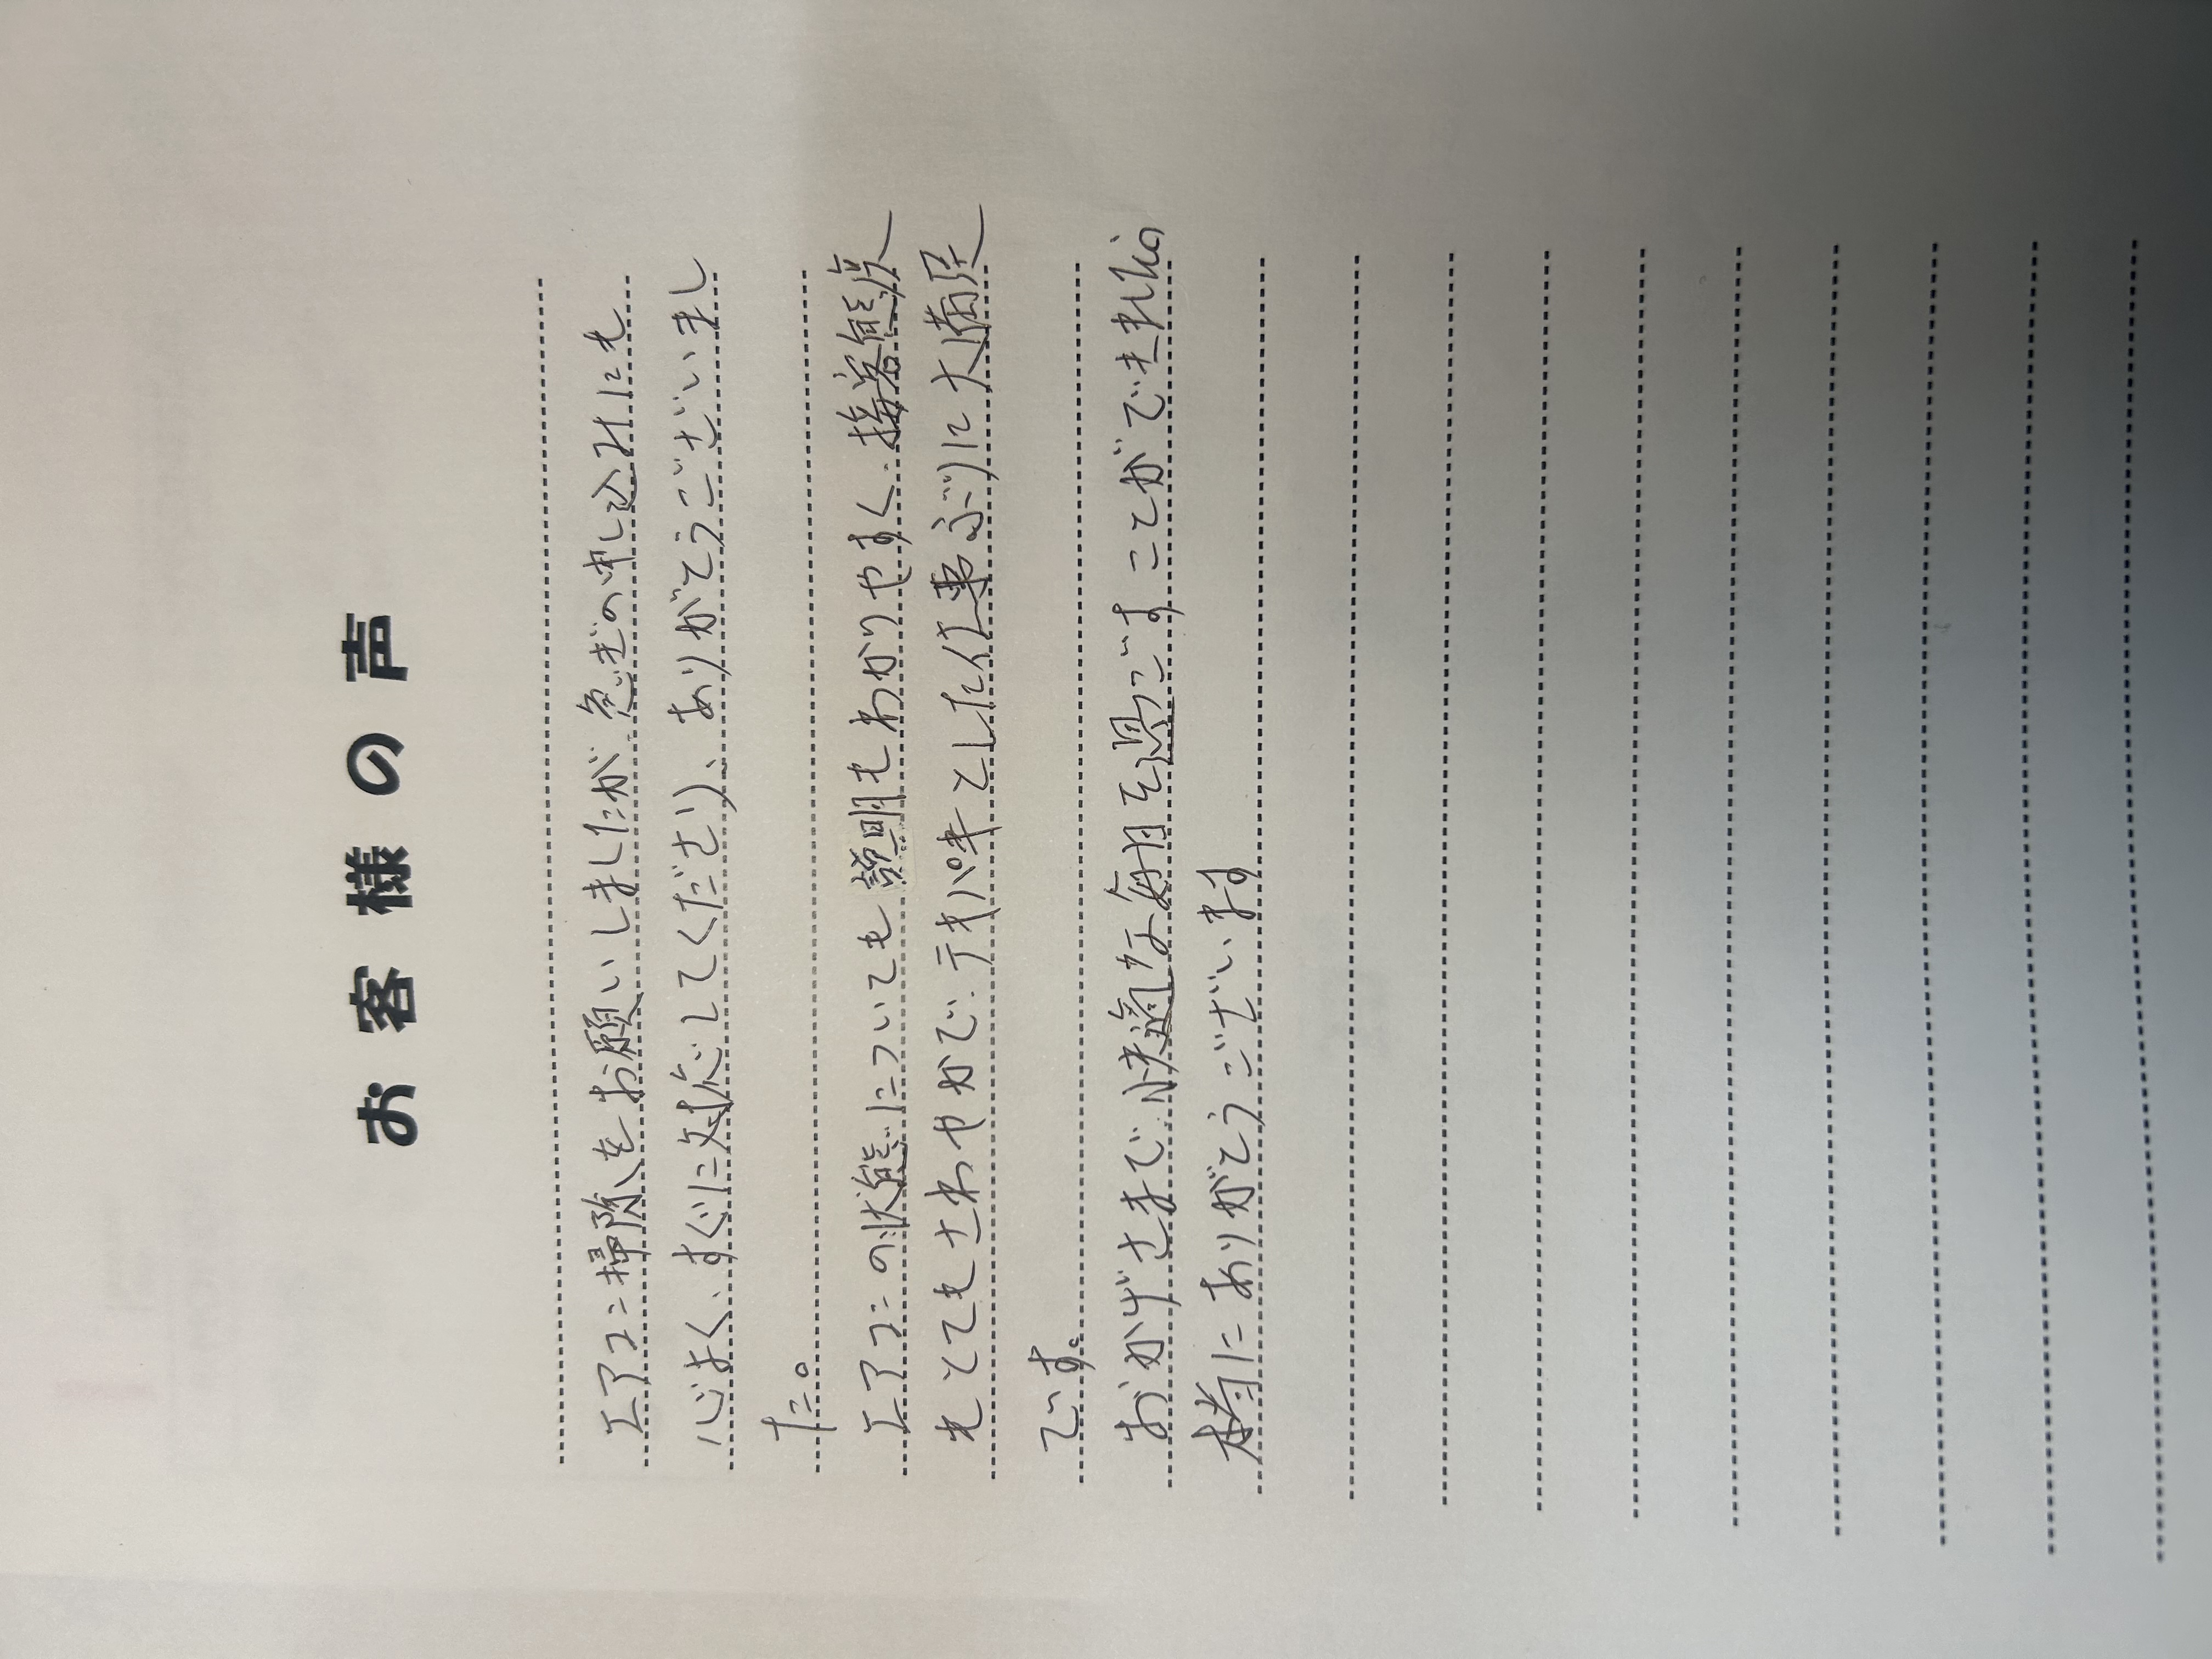 お客様の声
エアコン掃除をお願いしましたが、急ぎの申し込みにも
心よく、すぐに対応してくださり、ありがとうございまし
た。
エアコンの状態についても説明もわかりやすく、接客態度
もとてもさわやかで、テキパキとした仕事ぶりに大満足
です。
おかげさまで、快適な毎日を過ごすことができ
本当にありがとうございます